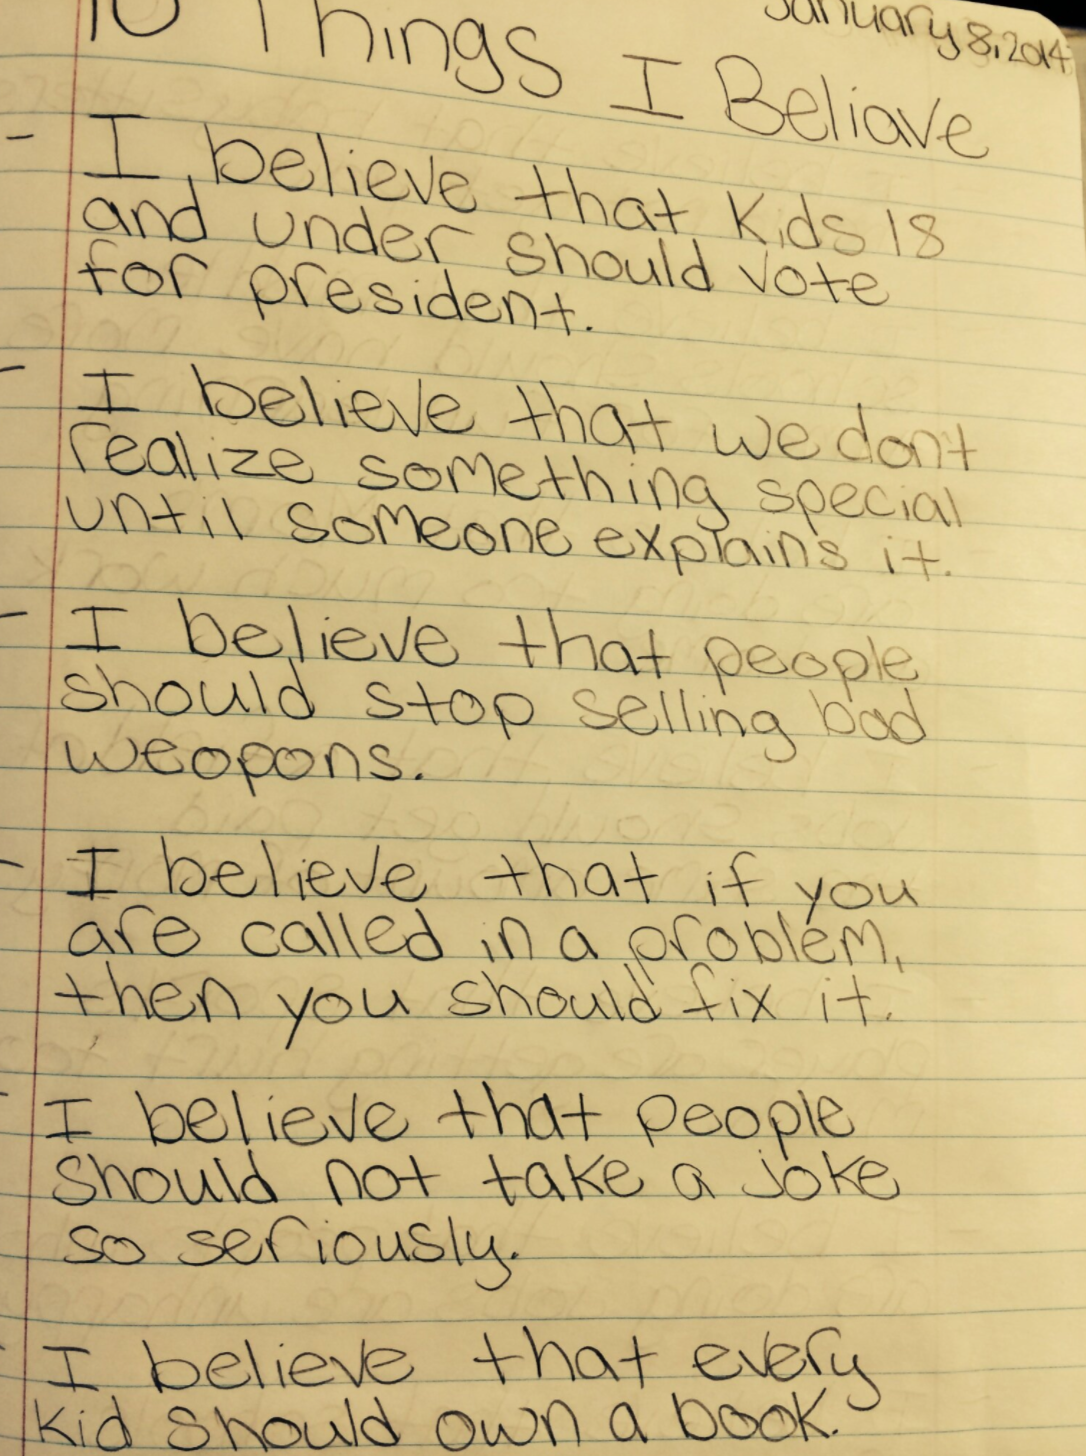 January 8, 2014
10 Things I Beliave
- I believe that Kids 18
and under should vote
for president.
- I believe that we dont
realize something special
until someone explains it.
- I believe that people
should stop selling bad
weopons.
- I believe that if you
are called in a problem,
then you should fix it.
- I believe that people
should not take a joke
so seriously.
- I believe that every
kid should own a book.